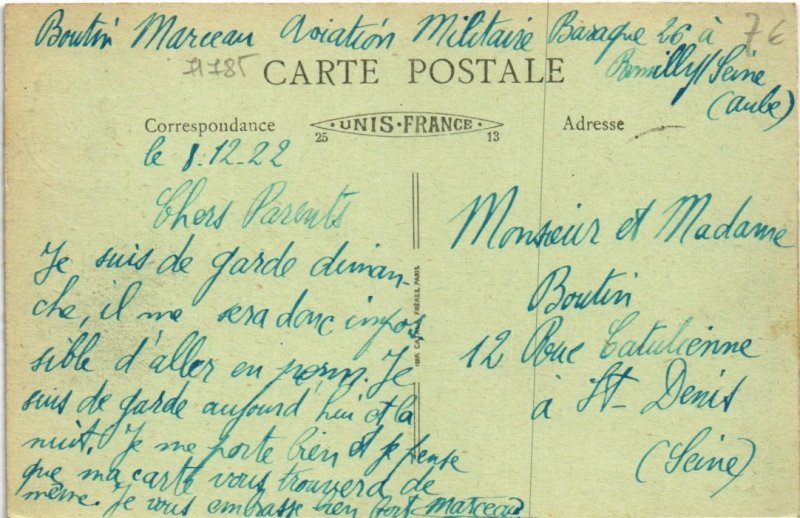 Boutin Marceau Aviation Militaire Baraque 26 à
Romilly/Seine
(Aube)
7€
CARTE POSTALE
Correspondance
25 UNIS-FRANCE 13
Adresse
le 8.12.22
Chers Parents
Je suis de garde diman-
che, il me sera donc impos
sible d'aller en perm. Je
suis de garde aujourd'hui et la
nuit. Je me porte bien et je pense
que ma carte vous trouvera de
même. Je vous embrasse bien fort Marceau
FRÈRES, PARIS
Monsieur et Madame
Boutin
12 Rue Catulienne
à St-Denis
(Seine)